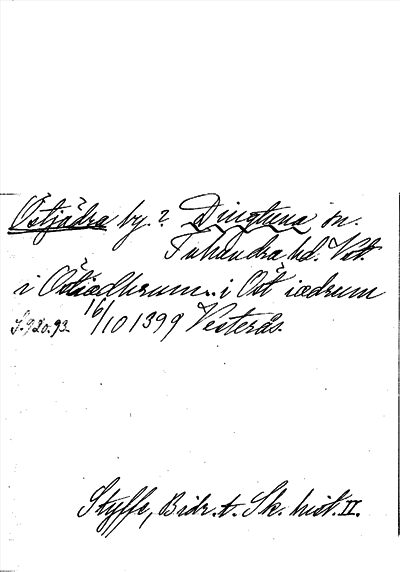 Östjädra by.? Dingtuna sn.
Tuhundra hd. Vstm.
i Östiædhrum.. i Öst iædrum
S. 92 o. 93. 16/10 1399 Vesterås.
Styffe, Bidr. t. Sk. hist. II.